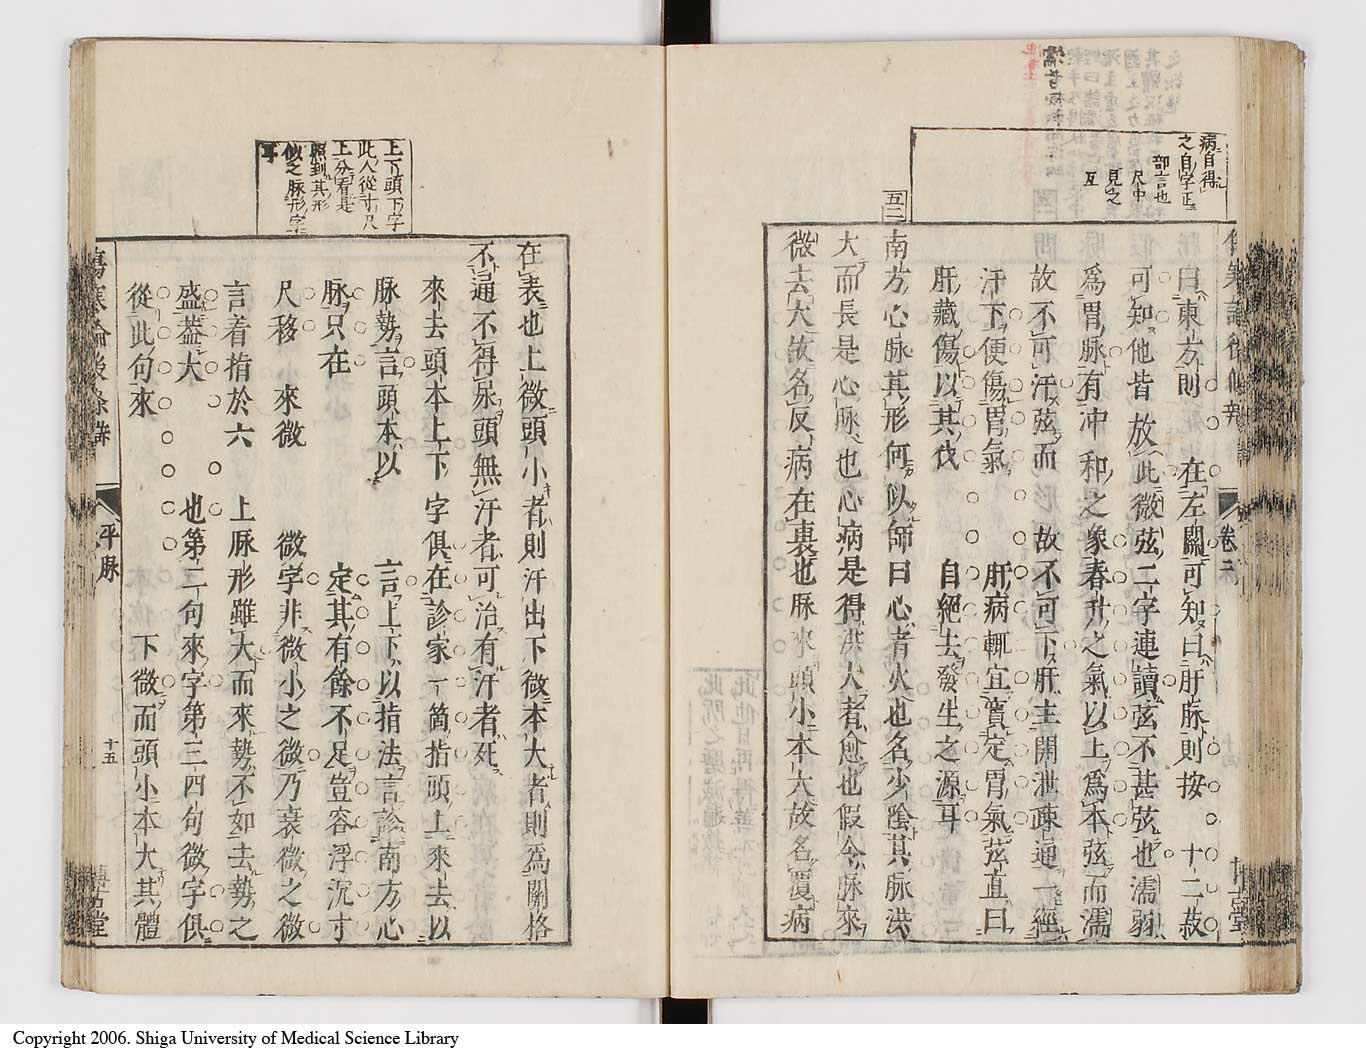 病自得
之自字正
部言也
尺中
見之
互
卷二
曰東方則 在左關可知曰肝脉則按 十二菽
可知他皆放此微弦二字連讀弦不甚弦也濡弱
爲胃脉有冲和之象春升之氣以上爲本弦而濡
故不可汗弦而 故不可下肝主開泄疎通一經
汗下便傷胃氣 肝病輒宜實定胃氣弦直曰
肝藏傷以其伐 自絕去發生之源耳
五二
南方心脉其形何似師曰心者火也名少陰其脉洪
大而長是心脉也心病是得洪大者愈也假令脉來
微去大故名反病在裏也脉來頭小本大故名覆病
上下頭下字
此人從寸尺
上分看是
照到其形
似之脉形字
耳
在表也上微頭小者則汗出下微本大者則爲關格
不通不得尿頭無汗者可治有汗者死
來去頭本上下字俱在診家一箇指頭上來去以
脉勢言頭本以 言上下以指法言診南方心
脉只在 定其有餘不足豈容浮沉寸
尺移 來微 微字非微小之微乃衰微之微
言着指於六 上脉形雖大而來勢不如去勢之
盛葢大 也第二句來字第三四句微字俱
從此句來 下微而頭小本大其體
傷寒論後條辨 平脉 十五
Copyright 2006. Shiga University of Medical Science Library